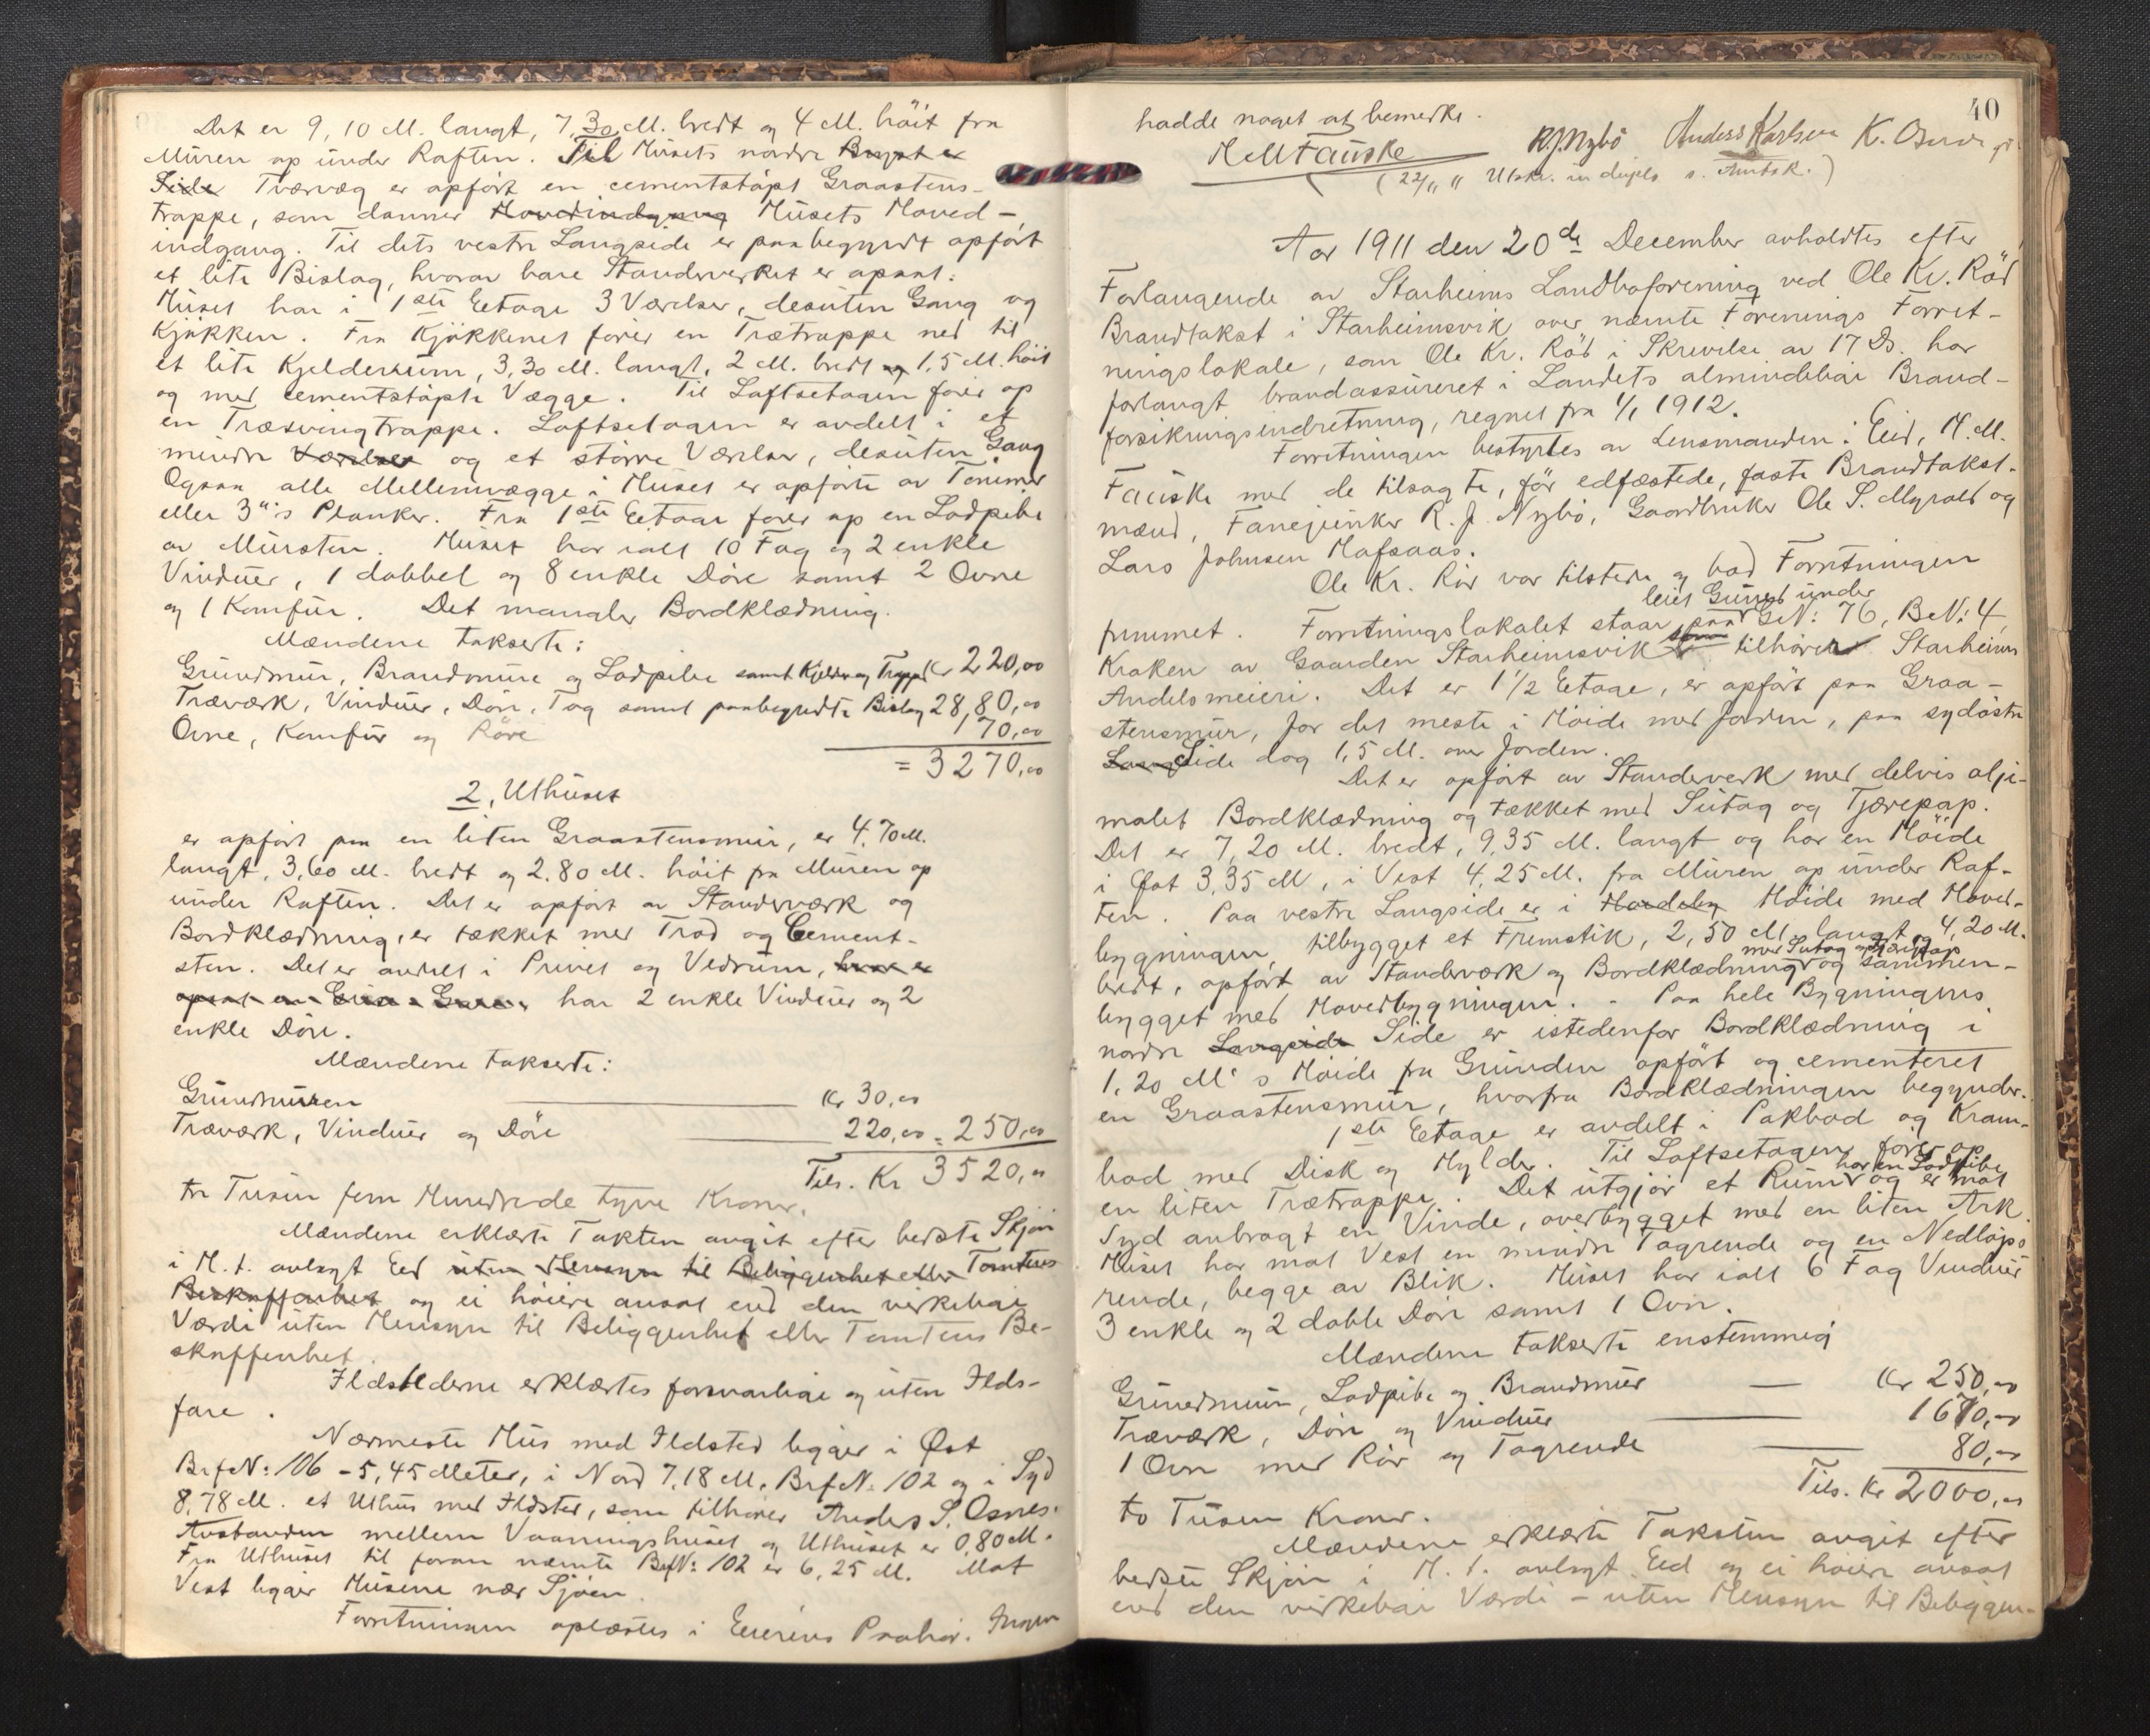 Det er 9,10 M. langt, 7,30 M. bredt og 4 M. höit fra
Muren op under Raften. Til Husets nordre Bryst er
Side Tværvæg er opfört en cementstöpt Graastens-
trappe, som danner Hovedindgang Husets Hoved-
indgang. Til dets vestre Langside er paabegyndt opfört
et lite Bislag, hvorav bare Standerverket er opsat.
Huset har i 1ste Etage 3 Værelser, desuten Gang og
Kjökken. Fra Kjökkenet förer en Trætrappe ned til
et lite Kjelderrum, 3,30 M. langt, 2 M. bredt og 1,5 M. höit
og med cementstöpte Vægge. Til Loftsetagen förer op
en Træsvingtrappe. Loftsetagen er avdelt i et
mindre Værelse og et större Værelse, desuten Gang
Ogsaa alle Mellemvægge i Huset er opförte av Tömmer
eller 3"s Planker. Fra 1ste Etage förer op en Lodpibe
av Mursten. Huset har ialt 10 Fag og 2 enkle
Vinduer, 1 dobbel og 8 enkle Döre samt 2 Ovne
og 1 Komfur. Det mangler Bordklædning.
Mændene takserte:
Grundmur, Brandmure og Lodpibe samt Kjelder og Trappe Kr 220,00
Træværk, Vinduer, Döre, Tag samt paabegyndte Bislag 28,80,00
Ovne, Komfur og Röre 170,00
= 3270,00
2, Uthuset
er opfört paa en liten Graastensmur, er 4,70 M.
langt, 3,60 M. bredt og 2.80 M. höit fra Muren op
under Raften. Det er opfört av Standerværk og
Bordklædning, er tækket med Trod og Cement-
sten. Det er avdelt i Privet og Vedrum, hvor er
opsat en har 2 enkle Vinduer og 2
enkle Döre.
Mændene takserte:
Grundmuren Kr 30,00
Træværk, Vinduer og Döre 220,00 = 250,00
Tils. Kr 3520,00
tre Tusen fem Hundrede tyve Kroner.
Mændene erklærte Taksten avgit efter bedste Skjön
i H. t. avlagt Eed uten Hensyn til Beliggenhet eller Tomtens
Beskaffenhet og ei höiere ansat end den virkelige
Værdi uten Hensyn til Beliggenhet eller Tomtens Be-
skaffenhet.
Ildstederne erklærtes forsvarlige og uten Ilds-
fare.
Nærmeste Hus med Ildsted ligger i Øst
BrfN: 106 - 5,45 Meter, i Nord 7,18 M. BrfN: 102 og i Syd
8,78 M. et Uthus med Ildsted, som tilhörer Anders S. Osnes.
Avstanden mellem Vaaningshuset og Uthuset er 0,80 M.
Fra Uthuset til foran nævnte BrfN: 102 er 6,25 M. Mot
Vest ligger Husene nær Sjöen.
Forretningen oplæstes i Eierens Paahör. Ingen
40
hadde noget at bemerke.
H M Fauske R.J. Nybö Anders Karlsen K.
(22/11 11 Utskr. in duplo s. Amtsk.)
Aar 1911 den 20de December avholdtes efter
Forlangende av Starheims Landboforening ved Ole Kr. Röd
Brandtakst i Starheimsvik over nævnte Forenings Forret-
ningslokale, som Ole Kr. Röd i Skrivelse av 17 Ds. har
forlangt brandassureret i Landets almindelige Brand-
forsikringsindretning, regnet fra 1/1 1912.
Forretningen bestyrtes av Lensmanden i Eid, H. M.
Fauske med de tilsagte, för edfæstede, faste Brandtakst-
mænd, Fanejunker R. J. Nybö, Gaardbruker Ole S. Myrold og
Lars Johnsen Hafsaas.
Ole Kr. Röd var tilstede og bad Forretningen
leiet Grund under
fremmet. Forretningslokalet staar paa GN: 76, BN: 4,
Kraken av Gaarden Starheimsvik som tilhörer Starheims
Andelsmeieri. Det er 1 1/2 Etage, er opfört paa Graa-
stensmur, for det meste i Höide med Jorden, paa sydöstre
Langside dog 1,5 M. over Jorden.
Det er opfört av Standerverk med delvis olje-
malet Bordklædning og tækket med Sutag og Tjærepap.
Det er 7,20 M. bredt, 9,35 M. langt og har en Höide
i Øst 3,35 M, i Vest 4,25 M. fra Muren op under Raf-
ten. Paa vestre Langside er i Höide med Hoved-
bygningen tilbygget et Fremstik, 2,50 M. langt og 4,20 M.
med Sutag og Tjærepap
bredt, opfört av Standerværk og Bordklædning og sammen-
bygget med Hovedbygningen. - Paa hele Bygningens
nordre Langside Side er istedenfor Bordklædning i
1,20 M's Höide fra Grunden opfört og cementeret
en Graastensmur, hvorfra Bordklædningen begynder.
1ste Etage er avdelt i Pakbod og Kram-
bod med Disk og Hylder. Til Loftsetagen förer op
har en Lodpibe
en liten Trætrappe. Det utgjör et Rum og er mot
Syd anbragt en Vinde, overbygget med en liten Ark.
Huset har mot Vest en mindre Tagrende og en Nedlöps-
rende, begge av Blik. Huset har ialt 6 Fag Vinduer
3 enkle og 2 doble Döre samt 1 Ovn.
Mændene takserte enstemmig
Grundmur, Lodpibe og Brandmur Kr 250,00
Træværk, Döre og Vinduer 1670,00
1 Ovn med Rör og Tagrende 80,00
Tils. Kr 2000,00
to Tusen Kroner.
Mændene erklærte Taksten avgit efter
bedste Skjön i H. t. avlagt Eed og ei höiere ansat
end den virkelige Værdi - uten Hensyn til Beliggen-